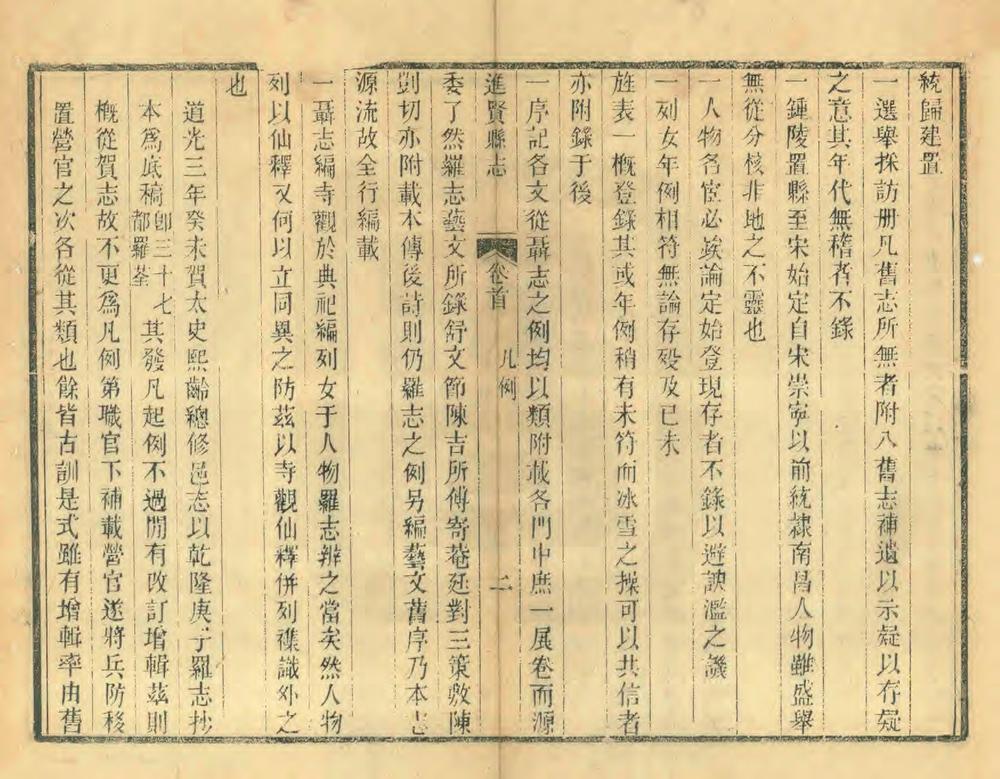 統歸建置
一選舉採訪册凡舊志所無者附入舊志補遺以示疑以存疑
之意其年代無稽者不錄
一鍾陵置縣至宋始定自宋崇寧以前統隸南昌人物雖盛舉
無從分核非地之不靈也
一人物名宦必俟論定始登現存者不錄以避諛濫之譏
一列女年例相符無論存殁及已未
旌表一概登錄其或年例稍有未符而冰雪之操可以共信者
亦附錄于後
一序記各文從聶志之例均以類附載各門中庶一展卷而源
進賢縣志
卷首
凡例
二
委了然羅志藝文所錄舒文節陳吉所傅寄菴廷對三策敷陳
剴切亦附載本傳後詩則仍羅志之例另編藝文舊序乃本志
源流故全行編載
一聶志編寺觀於典祀編列女于人物羅志辨之當矣然人物
列以仙釋又何以立同異之防茲以寺觀仙釋併列襍識外之
也
道光三年癸未賀太史熙齡總修邑志以乾隆庚子羅志抄
本為底稿即三十七都羅荃其發凡起例不過閒有改訂增輯茲則
概從賀志故不更為凡例第職官下補載營官遂將兵防移
置營官之次各從其類也餘皆古訓是式雖有增輯率由舊